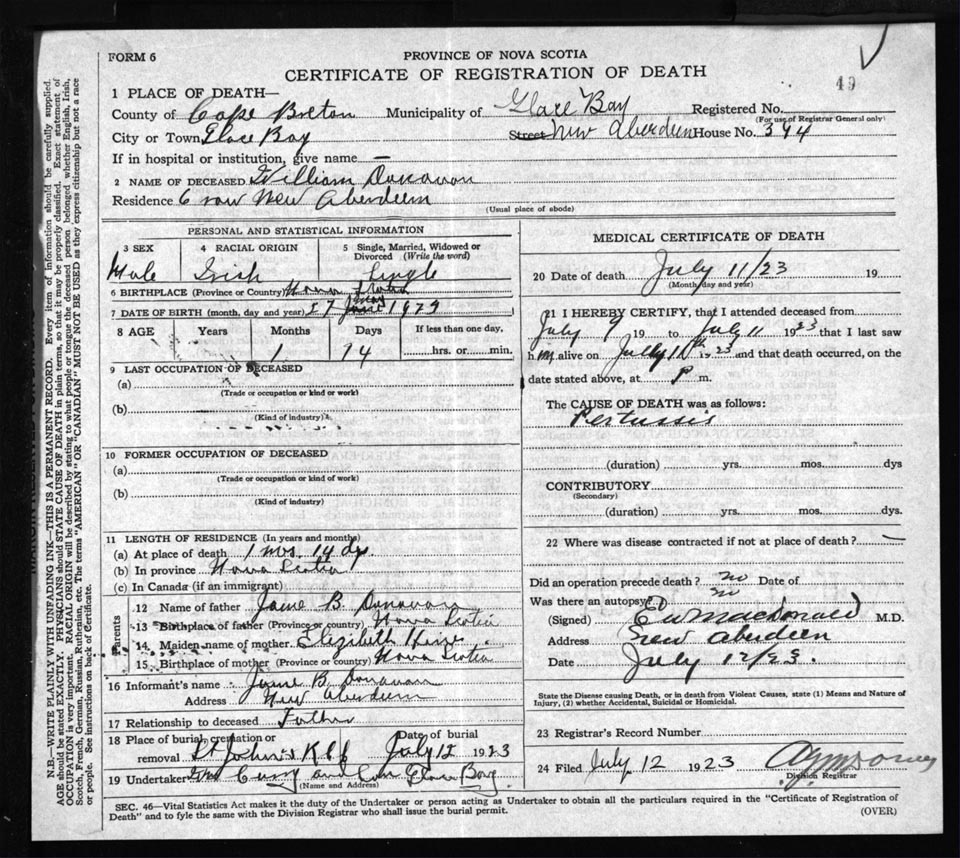 FORM 6
PROVINCE OF NOVA SCOTIA
CERTIFICATE OF REGISTRATION OF DEATH
49
1 PLACE OF DEATH—
County of Cape Breton Municipality of Glace Bay Registered No.
(For use of Registrar General only)
City or Town Glace Bay Street New Aberdeen House No. 394
If in hospital or institution, give name —
2 NAME OF DECEASED William Donavan
Residence 6 row New Aberdeen
(Usual place of abode)
PERSONAL AND STATISTICAL INFORMATION
3 SEX 4 RACIAL ORIGIN 5 Single, Married, Widowed or Divorced (Write the word)
Male Irish Single
6 BIRTHPLACE (Province or Country) Nova Scotia
7 DATE OF BIRTH (month, day and year) 27 May 1923
8 AGE Years Months Days If less than one day,
1 14 hrs. or min.
9 LAST OCCUPATION OF DECEASED
(a)
(Trade or occupation or kind or work)
(b)
(Kind of industry)
10 FORMER OCCUPATION OF DECEASED
(a)
(Trade or occupation or kind of work)
(b)
(Kind of industry)
11 LENGTH OF RESIDENCE (In years and months)
(a) At place of death 1 mos. 14 dys
(b) In province Nova Scotia
(c) In Canada (if an immigrant)
Parents
12 Name of father Jame B. Donavan
13 Birthplace of father (Province or country) Nova Scotia
14 Maiden name of mother Elizibeth
15 Birthplace of mother (Province or Country) Nova Scotia
16 Informant's name Jame B Donavan
Address New Aberdeen
17 Relationship to deceased Father
18 Place of burial, cremation or removal St John's Date of burial July 12 1923
19 Undertaker Curry and Glace Bay
(Name and Address)
MEDICAL CERTIFICATE OF DEATH
20 Date of death July 11/23 19
(Month, day and year)
21 I HEREBY CERTIFY, that I attended deceased from
July 9 19 to July 11 1923 that I last saw
him alive on July 10th 1923 and that death occurred, on the
date stated above, at P m.
The CAUSE OF DEATH was as follows:
Pertussis
(duration) yrs. mos. dys
CONTRIBUTORY
(Secondary)
(duration) yrs. mos. dys.
22 Where was disease contracted if not at place of death? —
Did an operation precede death? no Date of
Was there an autopsy? no
(Signed) MacDonald M.D.
Address New Aberdeen
Date July 12/23.
State the Disease causing Death, or in death from Violent Causes, state (1) Means and Nature of
Injury, (2) whether Accidental, Suicidal or Homicidal.
23 Registrar's Record Number
24 Filed July 12 1923
Division Registrar
SEC. 46—Vital Statistics Act makes it the duty of the Undertaker or person acting as Undertaker to obtain all the particulars required in the "Certificate of Registration of
Death" and to fyle the same with the Division Registrar who shall issue the burial permit.
(OVER)
N.B.—WRITE PLAINLY WITH UNFADING INK—THIS IS A PERMANENT RECORD. Every item of information should be carefully supplied.
AGE should be stated EXACTLY. PHYSICIANS should STATE CAUSE OF DEATH in plain terms, so that it may be properly classified. Exact statement of
OCCUPATION is very important. RACIAL ORIGIN will be described by stating to what people or tongue the deceased person belonged whether English, Irish,
Scotch, French, German, Russian, Ruthenian, etc. The terms "AMERICAN" OR "CANADIAN" MUST NOT BE USED as they express citizenship but not a race
or people. See instructions on back of Certificate.